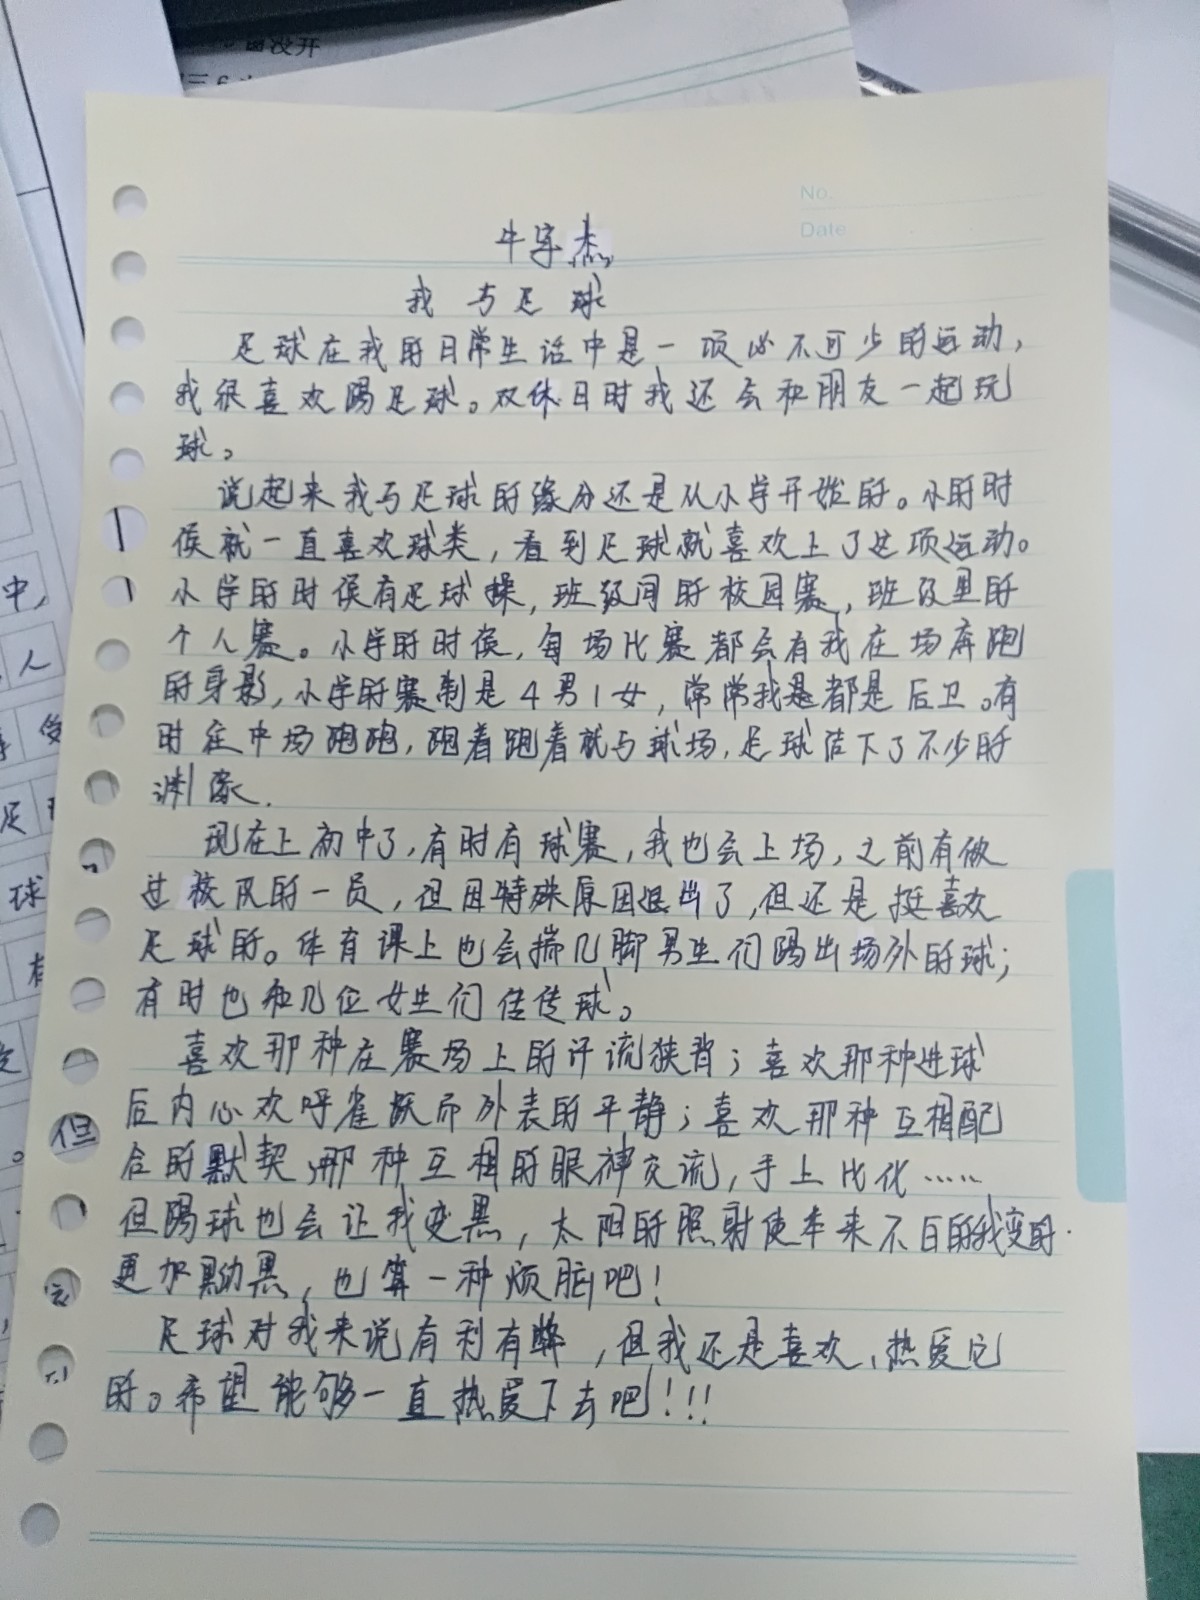 窗没开
No.
Date
牛字杰
我与足球
足球在我的日常生活中是一项必不可少的运动，
我很喜欢踢足球。双休日时我还会和朋友一起玩
球。
说起来我与足球的缘分还是从小学开始的。小的时
候就一直喜欢球类，看到足球就喜欢上了这项运动。
小学的时候有足球操，班级间的校园赛，班级里的
个人赛。小学的时候，每场比赛都会有我在场奔跑
的身影，小学的赛制是4男1女，常常我是都是后卫。有
时往中场跑跑，跑着跑着就与球场，足球结下了不少的
渊缘.
现在上初中了，有时有球赛，我也会上场，之前有做
过校队的一员，但因特殊原因退出了，但还是挺喜欢
足球的。体育课上也会揣几脚男生们踢出场外的球；
有时也和几位女生们传传球。
喜欢那种在赛场上的汗流狭背；喜欢那种进球
后内心欢呼雀跃而外表的平静；喜欢那种互相配
合的默契，那种互相的眼神交流，手上比化……
但踢球也会让我变黑，太阳的照射使本来不白的我变的
更加黝黑，也算一种烦脏吧！
足球对我来说有利有弊，但我还是喜欢、热爱它
的。希望能够一直热爱下去吧！！！
中，
人
受
足
球
但